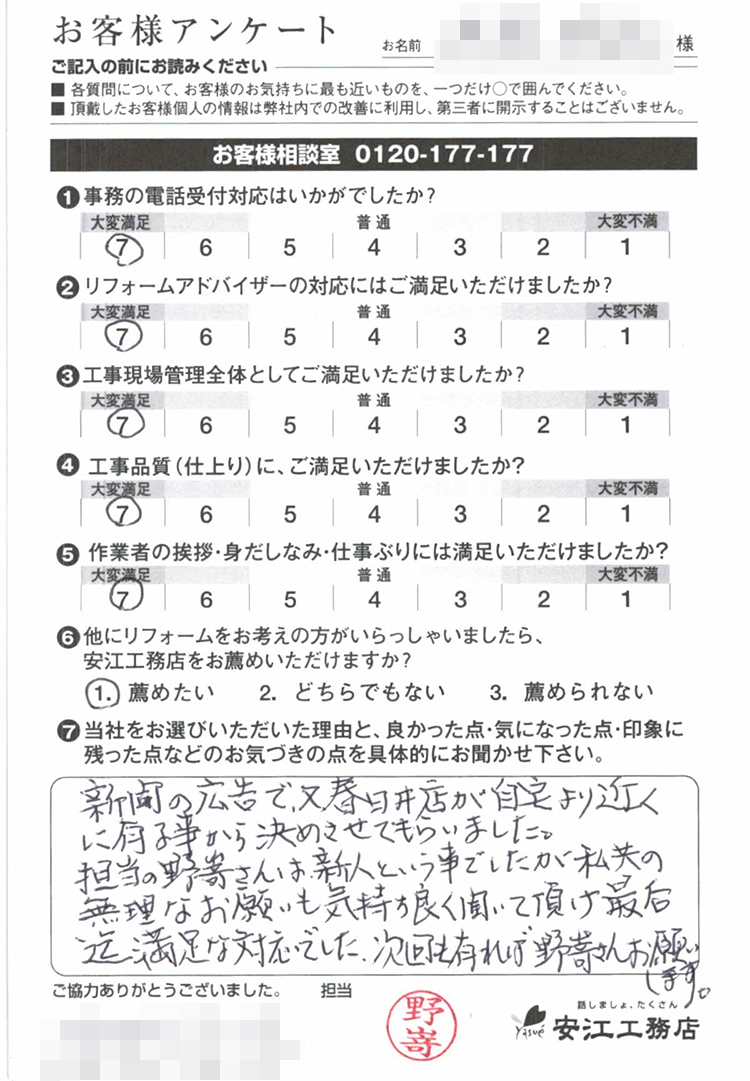 お客様アンケート
お名前 様
ご記入の前にお読みください
■ 各質問について、お客様のお気持ちに最も近いものを、一つだけ○で囲んでください。
■ 頂戴したお客様個人の情報は弊社内での改善に利用し、第三者に開示することはございません。
お客様相談室 0120-177-177
❶ 事務の電話受付対応はいかがでしたか?
大変満足 普通 大変不満
7 6 5 4 3 2 1
❷ リフォームアドバイザーの対応にはご満足いただけましたか?
大変満足 普通 大変不満
7 6 5 4 3 2 1
❸ 工事現場管理全体としてご満足いただけましたか?
大変満足 普通 大変不満
7 6 5 4 3 2 1
❹ 工事品質(仕上り)に、ご満足いただけましたか?
大変満足 普通 大変不満
7 6 5 4 3 2 1
❺ 作業者の挨拶・身だしなみ・仕事ぶりには満足いただけましたか?
大変満足 普通 大変不満
7 6 5 4 3 2 1
❻ 他にリフォームをお考えの方がいらっしゃいましたら、
安江工務店をお薦めいただけますか?
1. 薦めたい 2. どちらでもない 3. 薦められない
❼ 当社をお選びいただいた理由と、良かった点・気になった点・印象に
残った点などのお気づきの点を具体的にお聞かせ下さい。
新聞の広告で、又春日井店が自宅より近く
に有る事から決めさせてもらいました。
担当の野嵜さんは新人という事でしたが私共の
無理なお願いも気持ち良く聞いて頂け最后
迄満足な対応でした、次回も有れば野嵜さんお願い
します。
ご協力ありがとうございました。 担当
野嵜
話しましょ、たくさん
Yasué 安江工務店